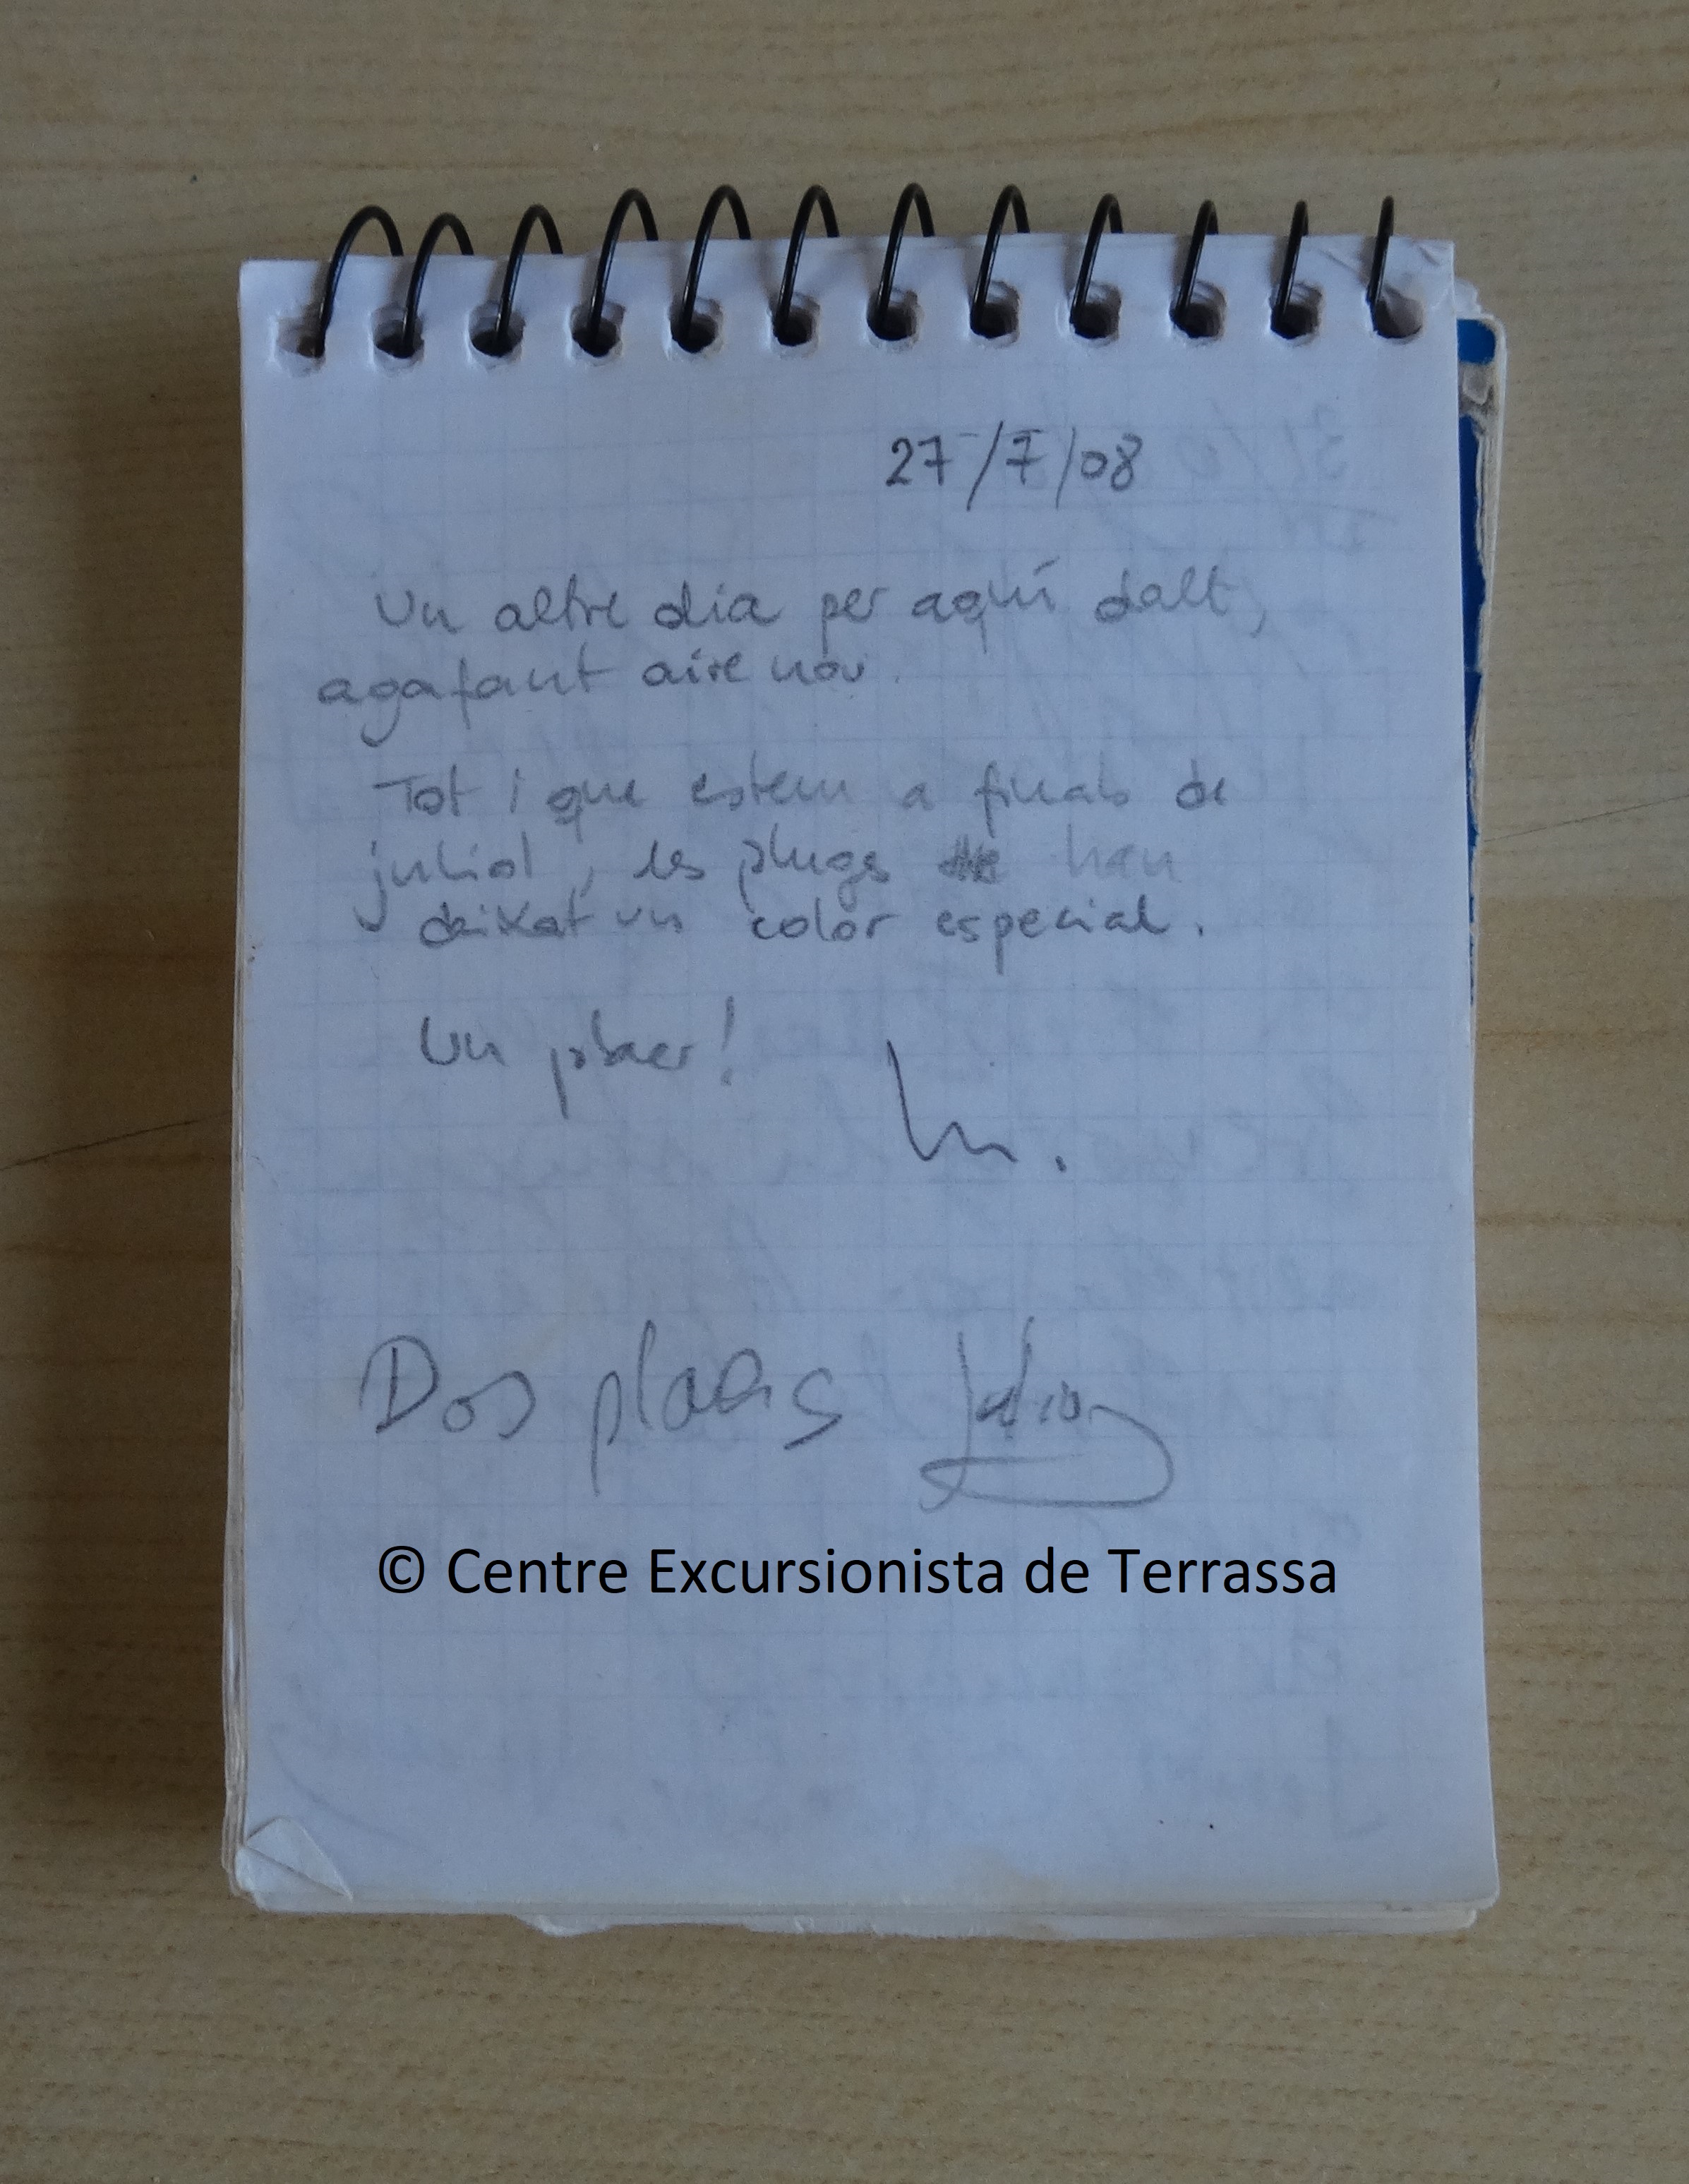 27/7/08
Un altre dia per aquí dalt,
agafant aire nou.
Tot i que estem a finals de
juliol, les plugs han
deixat un color especial.
Un plaer!
Dos plaers
© Centre Excursionista de Terrassa